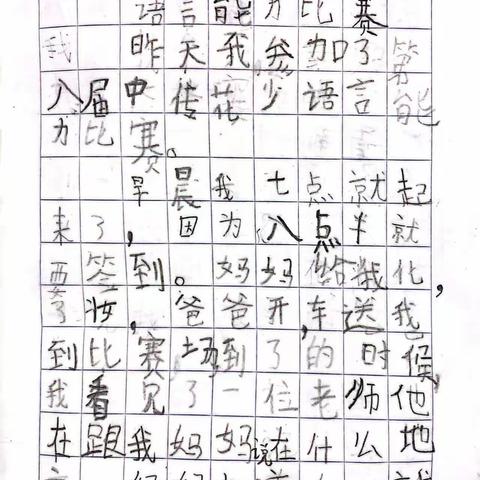 语言能力比赛
昨天我参加了第
八届中传花少语言能
力比赛。
早晨我七点就起
来了，因为八点半就
要签到。妈妈给我化
了妆，爸爸开车送我
到比赛场，到了的时候，
我看见了一位老师他
在跟我妈妈说在什么地